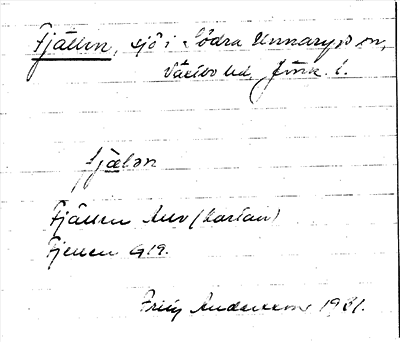 Fjällen, sjö i Södra Unnaryds sn,
Västbo hd, Jönk. l.
fjælən
Fjällen Auv (karian)
Fjellen G19.
Fritz Andersson 1931.